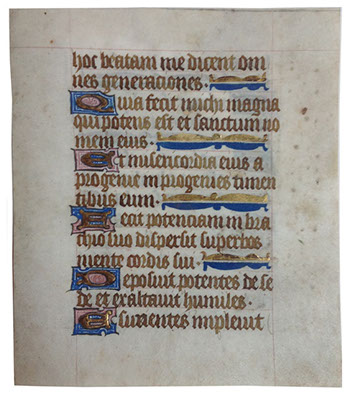 hoc beatam me dicent om
nes generaciones.
Quia fecit michi magna
qui potens est et sanctum no
mem eius.
Et misericordia eius a
progenie in progenies timen
tibus eum.
Fecit potenciam in bra
chio suo dispersit superbos
mente cordis sui.
Deposuit potentes de se
de et exaltavit humiles.
Esurientes implevit